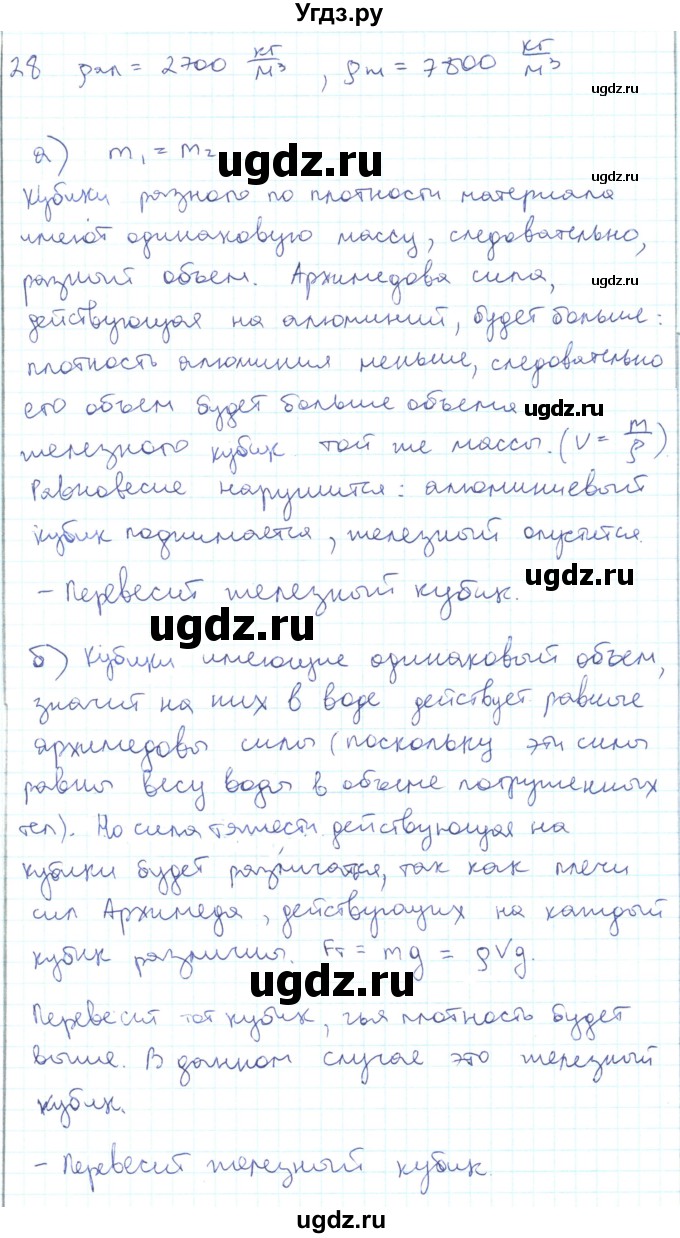 Угдз.ру
28 ρал = 2700 кг/м³, ρж = 7800 кг/м³
ugdz.ru
а) m₁ = m₂
ugdz.ru
Кубики разного по плотности материала
имеют одинаковую массу, следовательно,
разный объем. Архимедова сила,
ugdz.ru
действующая на алюминий, будет больше:
плотность алюминия меньше, следовательно
его объем будет больше объема
ugdz.ru
железного кубик той же массы. (V = m/ρ)
Равновесие нарушится: алюминиевый
кубик поднимается, железный опустится.
ugdz.ru
- Перевесит железный кубик.
ugdz.ru
б) Кубики имеющие одинаковый объем,
значит на них в воде действует равные
архимедовы силы (поскольку эти силы
равны весу воды в объеме погруженных
тел). Но сила тяжести действующая на
кубики будет различаться, так как плечи
сил Архимеда, действующих на каждый
кубик различны. Fт = mg = ρVg.
ugdz.ru
Перевесит тот кубик, чья плотность будет
выше. В данном случае это железный
кубик.
ugdz.ru
- Перевесит железный кубик.
ugdz.ru